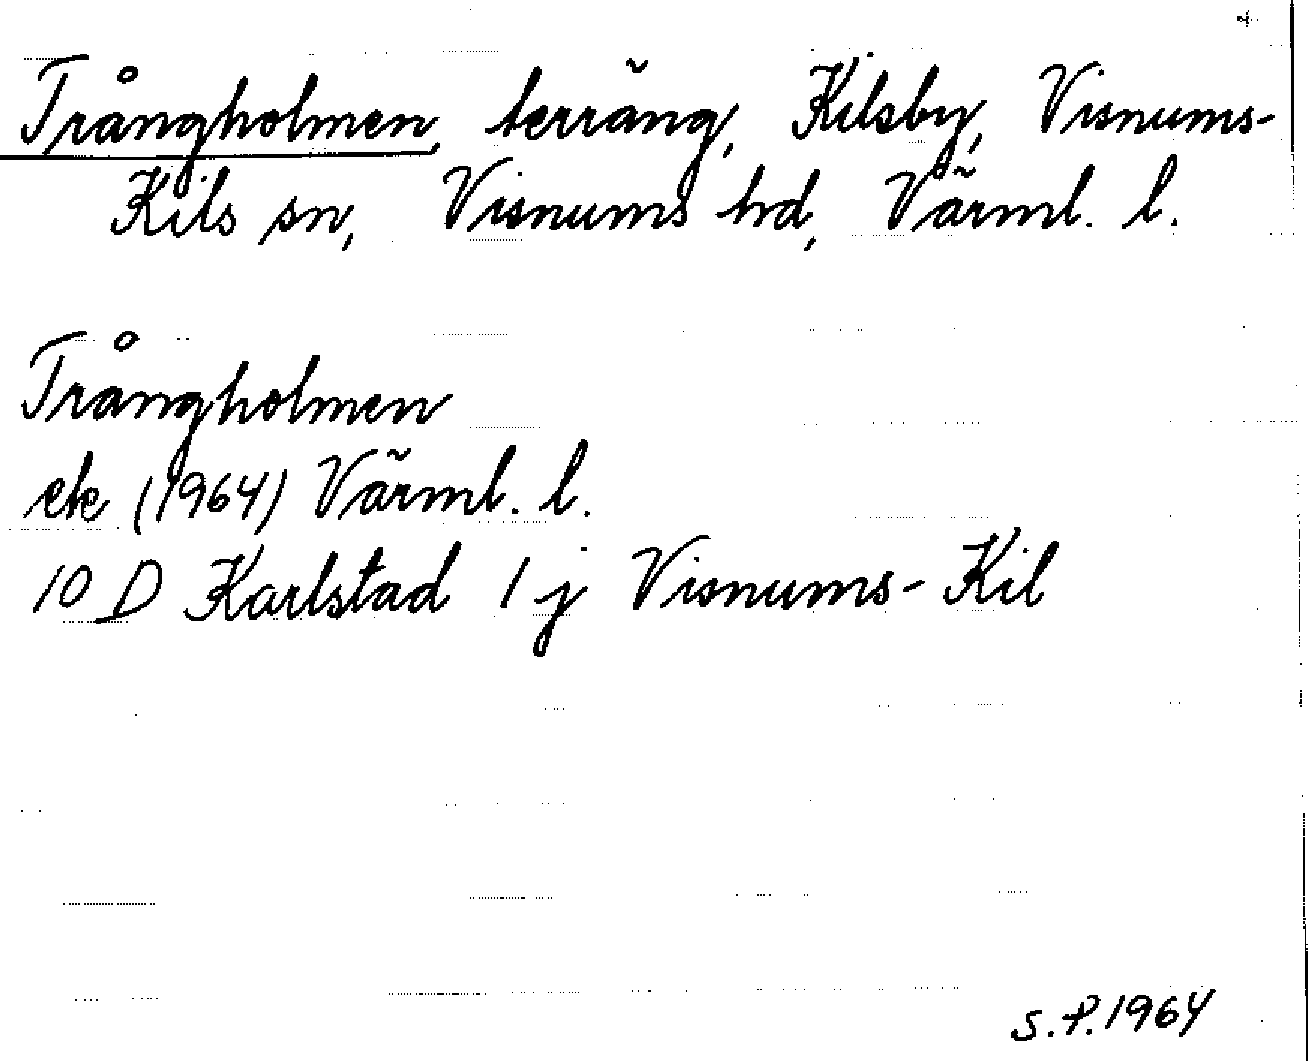 Trångholmen, terräng, Kilsby, Visnums-
Kils sn, Visnums hd, Värml. l.
Trångholmen
ek (1964) Värml. l.
10 D Karlstad 1 j Visnums-Kil
S.P. 1964